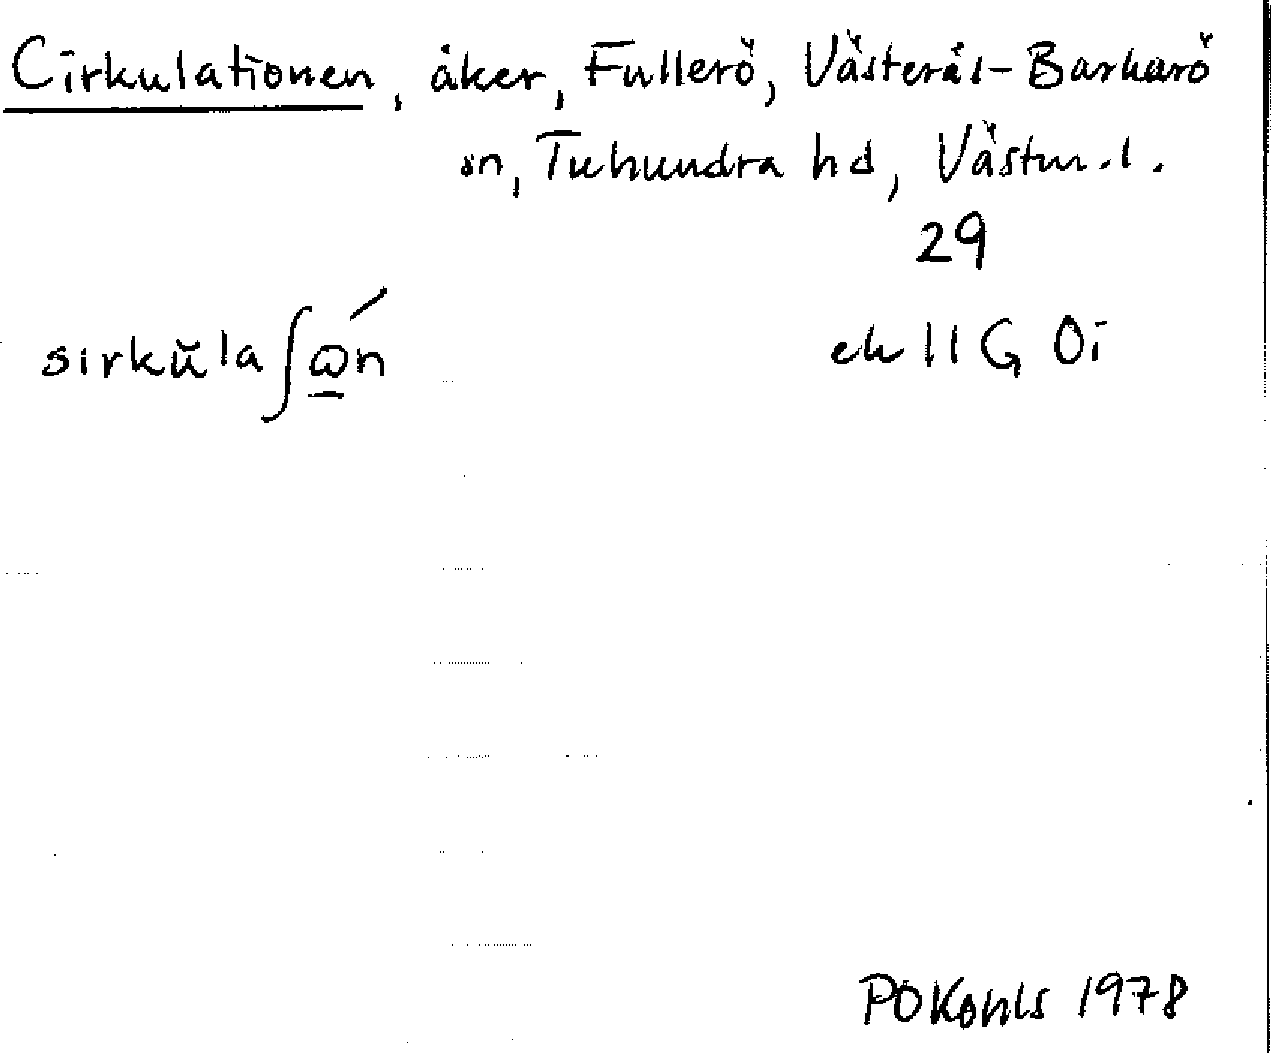 Cirkulationen, åker, Fullerö, Västerås-Barkarö
sn, Tuhundra hd, Västm.l.
29
sirkŭlaʃώ̱n
ek 11 G 0i
1978